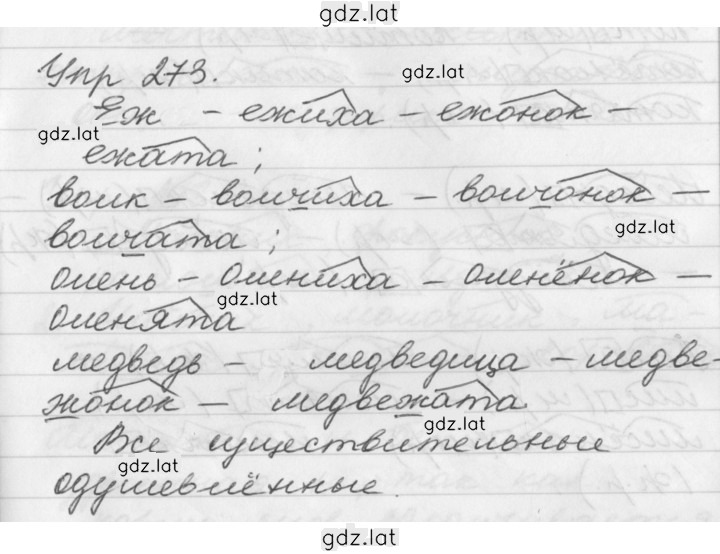 gdz.lat
Упр 273. gdz.lat
Ёж - ежиха - ежонок -
gdz.lat
ежата;
волк - волчиха - волчонок -
gdz.lat
волчата;
олень - олениха - оленёнок -
gdz.lat
оленята
медведь - медведица - медве-
жонок - медвежата.
gdz.lat
Все существительные
gdz.lat
одушевлённые.
gdz.lat